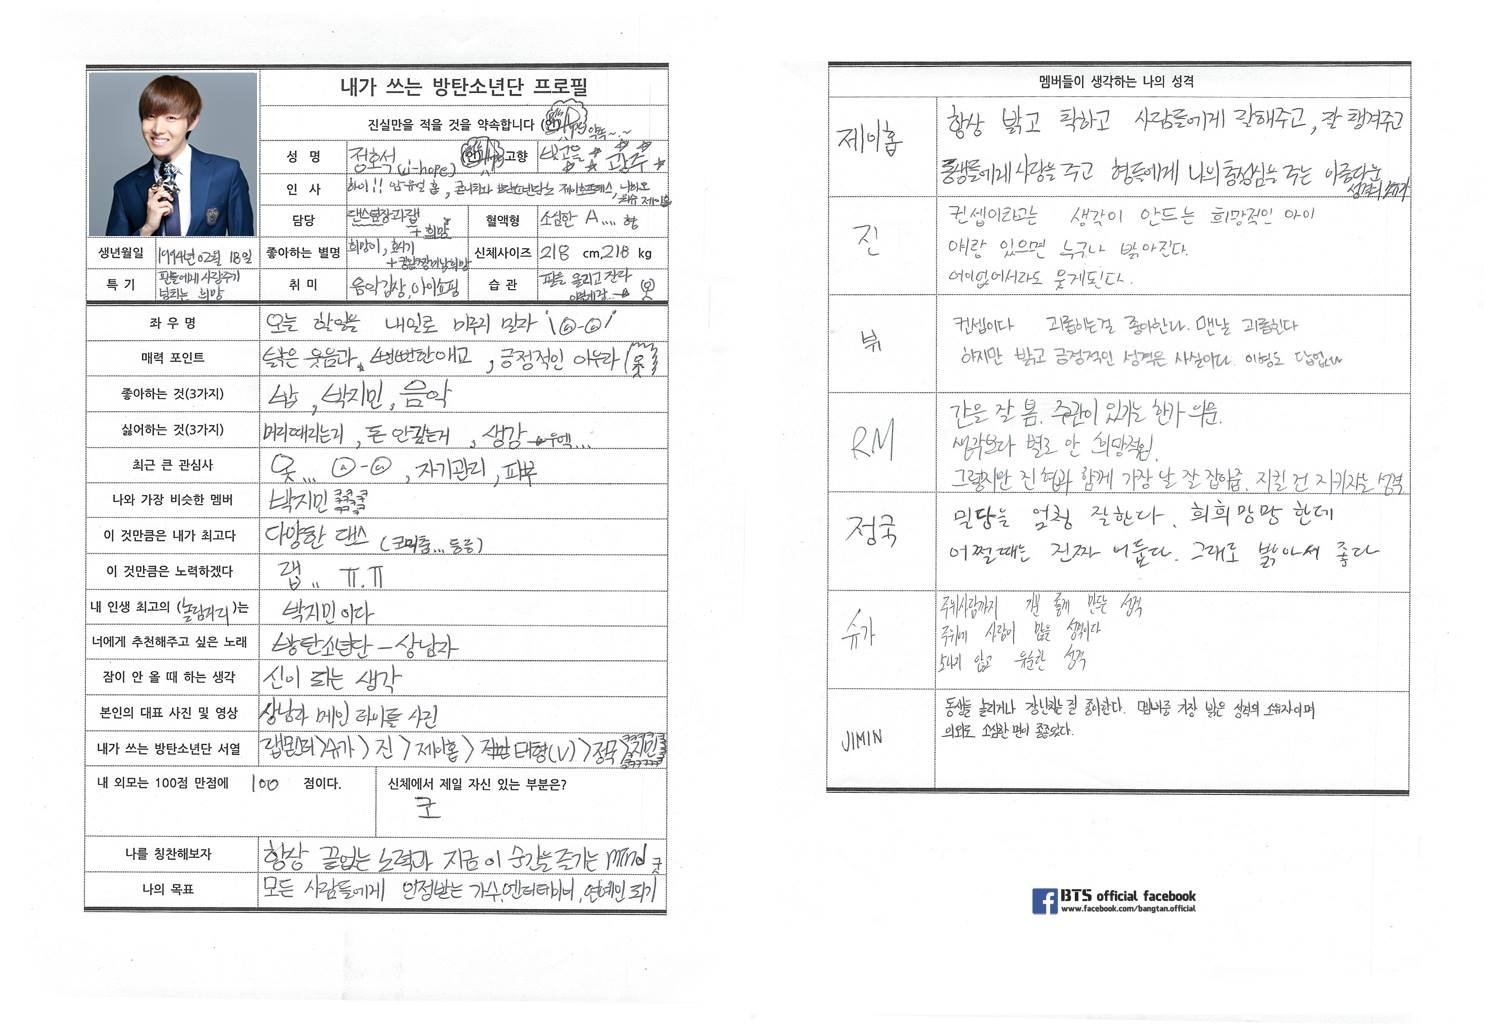 내가 쓰는 방탄소년단 프로필
진실만을 적을 것을 약속합니다 (인) 약뚝~.~
성 명 정호석 (j-hope) (인) 고향 빛고을 광주
인 사 하이!! 제이홉
담당 댄스담당과 랩 + 희망 혈액형 소심한 A.... 형
생년월일 1994년 02월 18일 좋아하는 별명 희망이, 호시기 신체사이즈 218 cm, 218 kg
특 기 팬들에게 사랑주기 넘치는 희망 취 미 음악감상, 아이쇼핑 습 관 팔을 올리고 잔다
좌 우 명 오늘 할일을 내일로 미루지 말자
매력 포인트 밝은 웃음과, 뻔뻔한 애교, 긍정적인 아우라 (옷)
좋아하는 것(3가지) 밥, 박지민, 음악
싫어하는 것(3가지) 머리때리는거, 돈 안갚는거, 생강 우엑...
최근 큰 관심사 옷... , 자기관리, 피부
나와 가장 비슷한 멤버 박지민 ㅋㅋㅋㅋㅋㅋㅋㅋ
이 것만큼은 내가 최고다 다양한 댄스 (코믹춤... 등등)
이 것만큼은 노력하겠다 랩.. ㅠ.ㅠ
내 인생 최고의 (놀림거리)는 박지민이다
너에게 추천해주고 싶은 노래 방탄소년단 - 상남자
잠이 안 올 때 하는 생각 신이 되는 생각
본인의 대표 사진 및 영상 상남자 메인 타이틀 사진
내가 쓰는 방탄소년단 서열 랩몬스터 > 슈가 > 진 > 제이홉 > 태형(V) > 정국 > 지민
내 외모는 100점 만점에 100 점이다. 신체에서 제일 자신 있는 부분은?
코
나를 칭찬해보자 항상 끝없는 노력과 지금 이 순간을 즐기는 mind 굿
나의 목표 모든 사람들에게 인정받는 가수, 엔터테이너, 연예인 되기
멤버들이 생각하는 나의 성격
제이홉 항상 밝고 착하고 사람들에게 잘해주고, 잘 챙겨주고
동생들에게 사랑을 주고 형들에게 나의 충성심을 주는 아름다운
성격의 소유자
진 컨셉이라고는 생각이 안드는 희망적인 아이
얘랑 있으면 누구나 밝아진다.
어이없어서라도 웃게된다.
뷔 컨셉이다 괴롭히는걸 좋아한다. 맨날 괴롭힌다
하지만 밝고 긍정적인 성격은 사실이다. 이형도 답없
RM 간을 잘 봄. 주관이 있기는 한가 의문.
생각보다 별로 안 희망적임.
그렇지만 진 형과 함께 가장 날 잘 잡아줌. 지킬 건 지키자는 성격
정국 밀당을 엄청 잘한다. 희희망망 한데
어쩔때는 진짜 어둡다. 그래도 밝아서 좋다
슈가 주위사람까지 기분 좋게 만드는 성격
주위에 사람이 많을 성격이다
모나지 않고 유순한 성격
JIMIN 동생들 놀리거나 장난치는 걸 좋아한다. 멤버중 가장 밝은 성격의 소유자이며
의외로 소심한 면이 존중았다.
BTS official facebook
www.facebook.com/bangtan.official